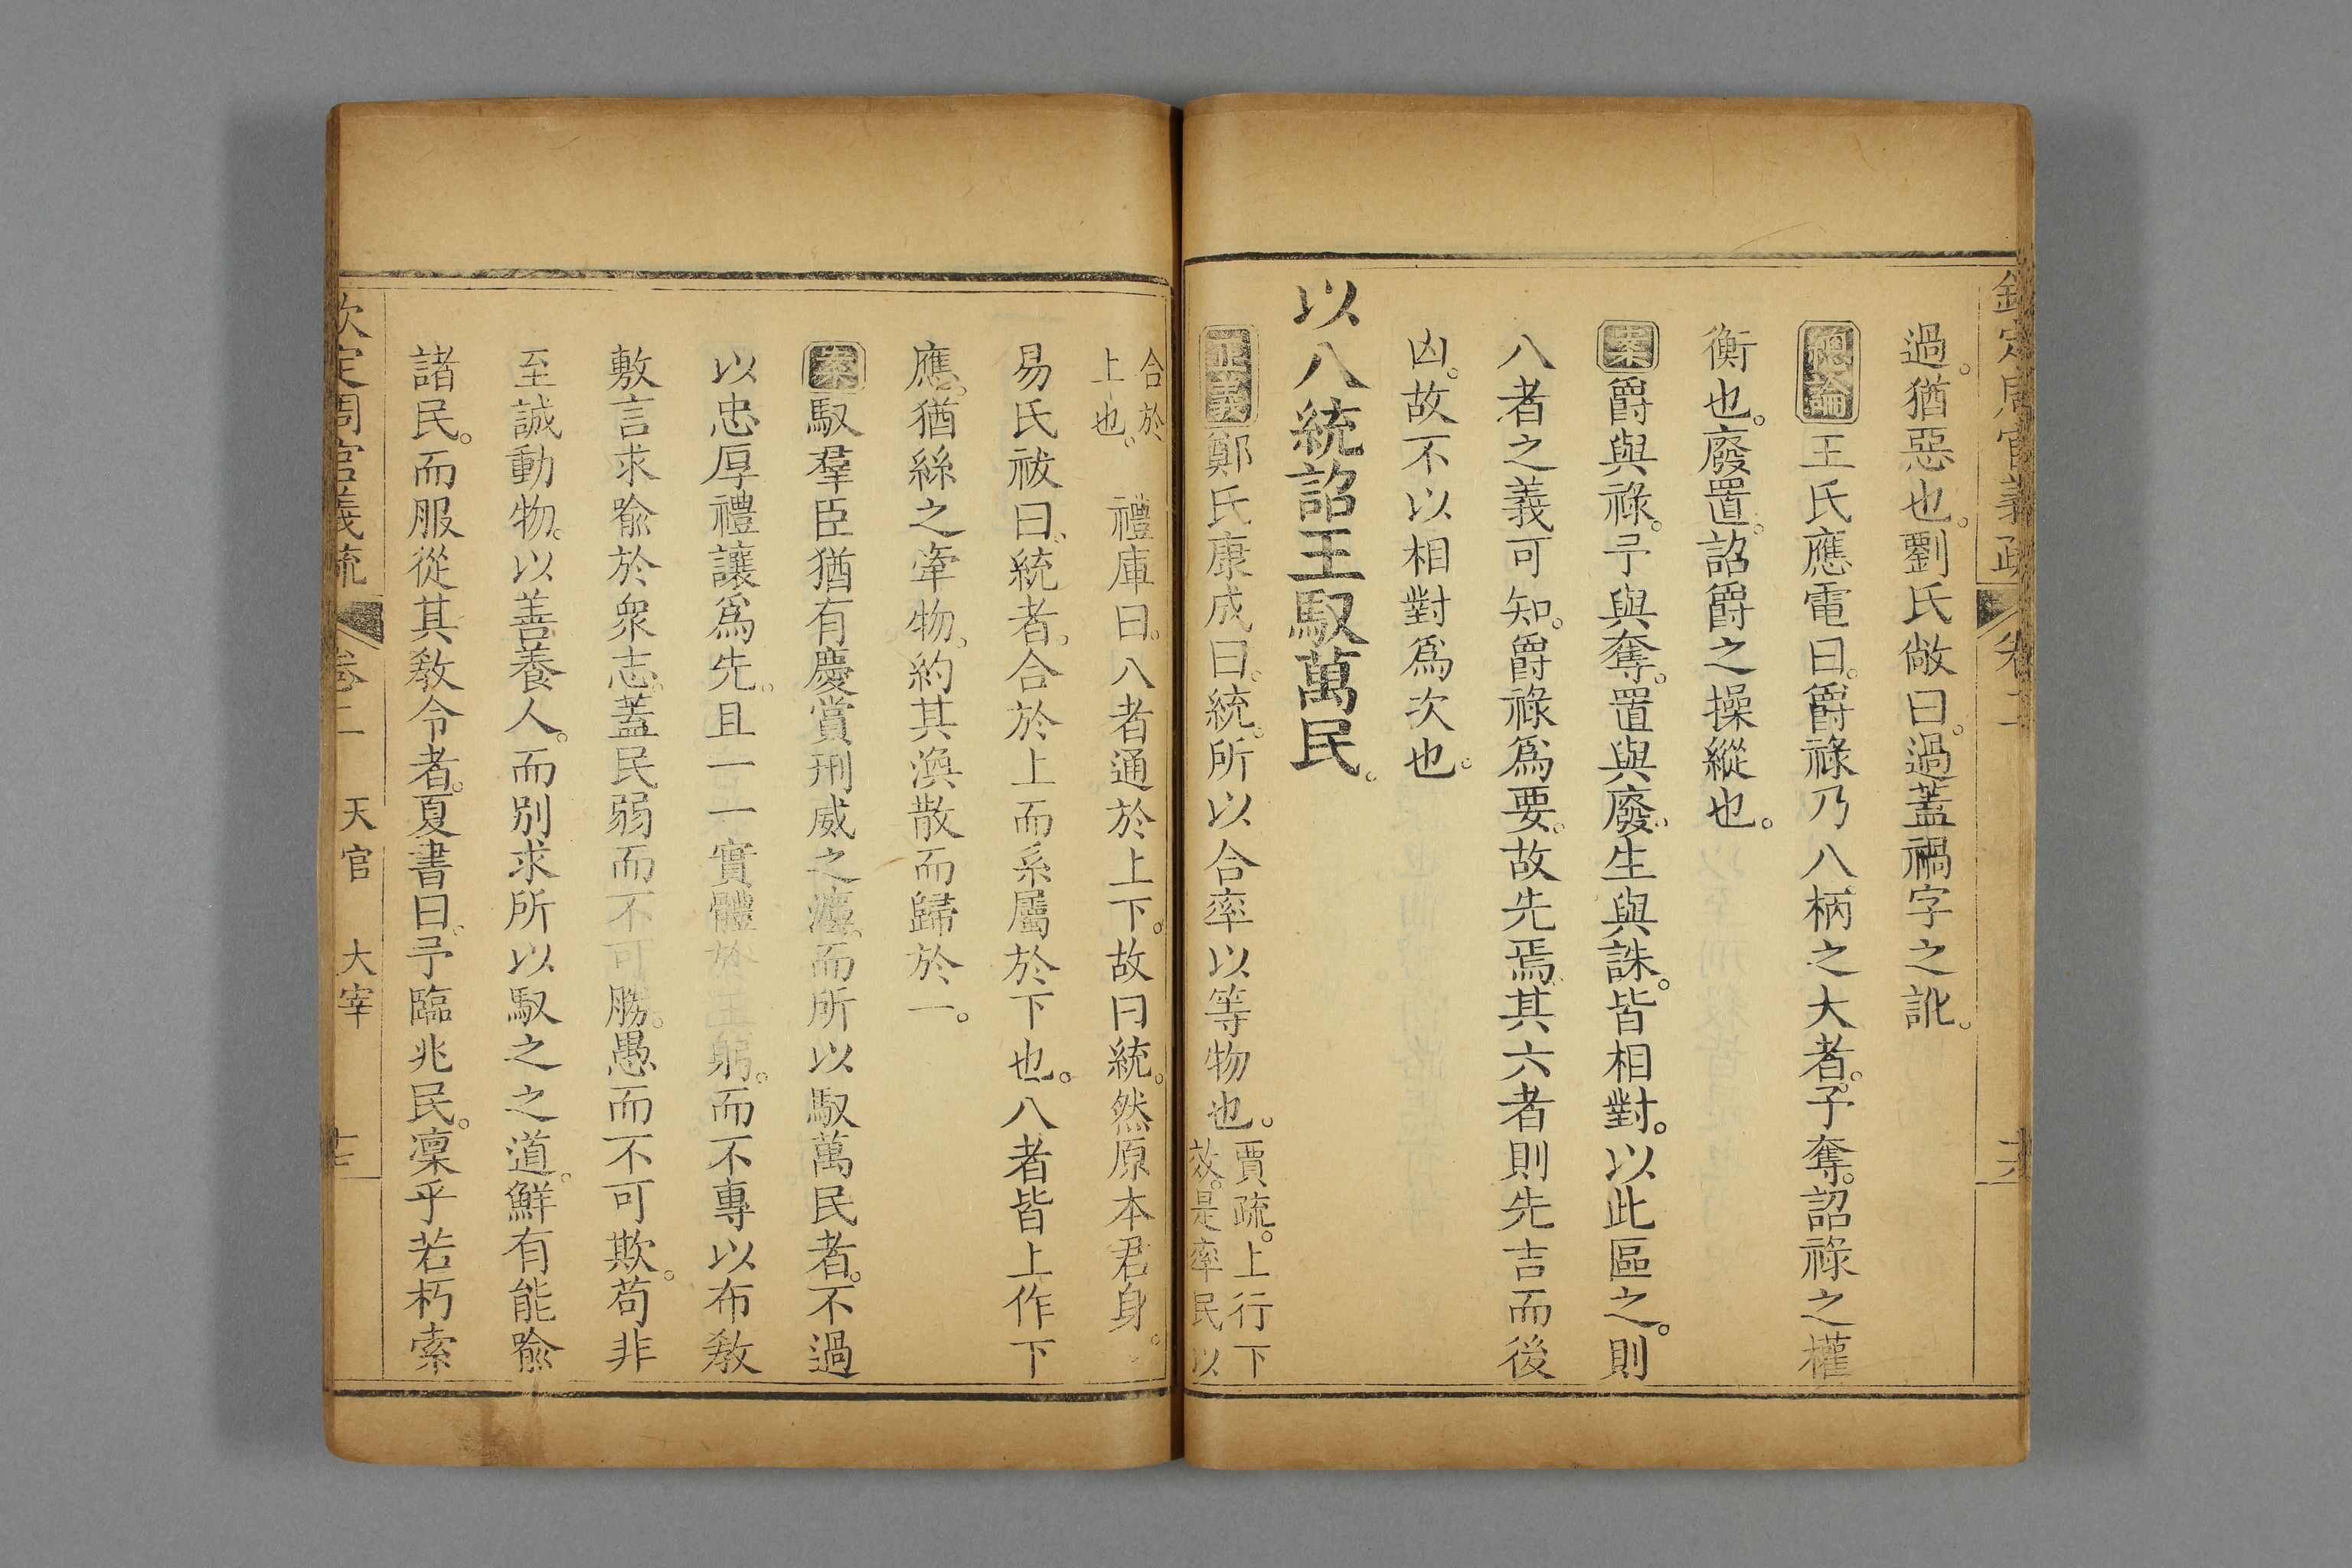 過。猶惡也。劉氏敞曰。過蓋禍字之訛。
總論王氏應電曰。爵祿乃八柄之大者。予奪。詔祿之權
衡也。廢置。詔爵之操縱也。
案爵與祿。予與奪。置與廢。生與誅。皆相對。以此區之。則
八者之義可知。爵祿爲要。故先焉。其六者則先吉而後
凶。故不以相對爲次也。
以八統詔王馭萬民。
正義鄭氏康成曰。統。所以合率以等物也。賈疏。上行下
效。是率民以
合於
上也。禮庫曰。八者通於上下。故曰統。然原本君身。
易氏祓曰。統者。合於上而系屬於下也。八者皆上作下
應。猶絲之牽物。約其渙散而歸於一。
案馭羣臣猶有慶賞刑威之灋。而所以馭萬民者。不過
以忠厚禮讓爲先。且一一實體於王躬。而不專以布敎
敷言求喩於衆志。蓋民弱而不可勝。愚而不可欺。苟非
至誠動物。以善養人。而別求所以馭之之道。鮮有能喩
諸民。而服從其敎令者。夏書曰。予臨兆民。凜乎若朽索
欽定周官義疏 卷二 天官 大宰